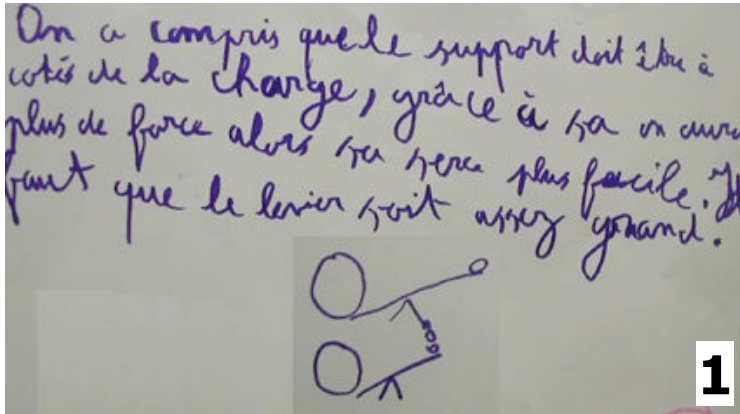 On a compris que le support doit être à
cotés de la charge, grâce à sa on aura
plus de force alors sa sera plus facile. Il
faut que le levier soit assez grand.
1